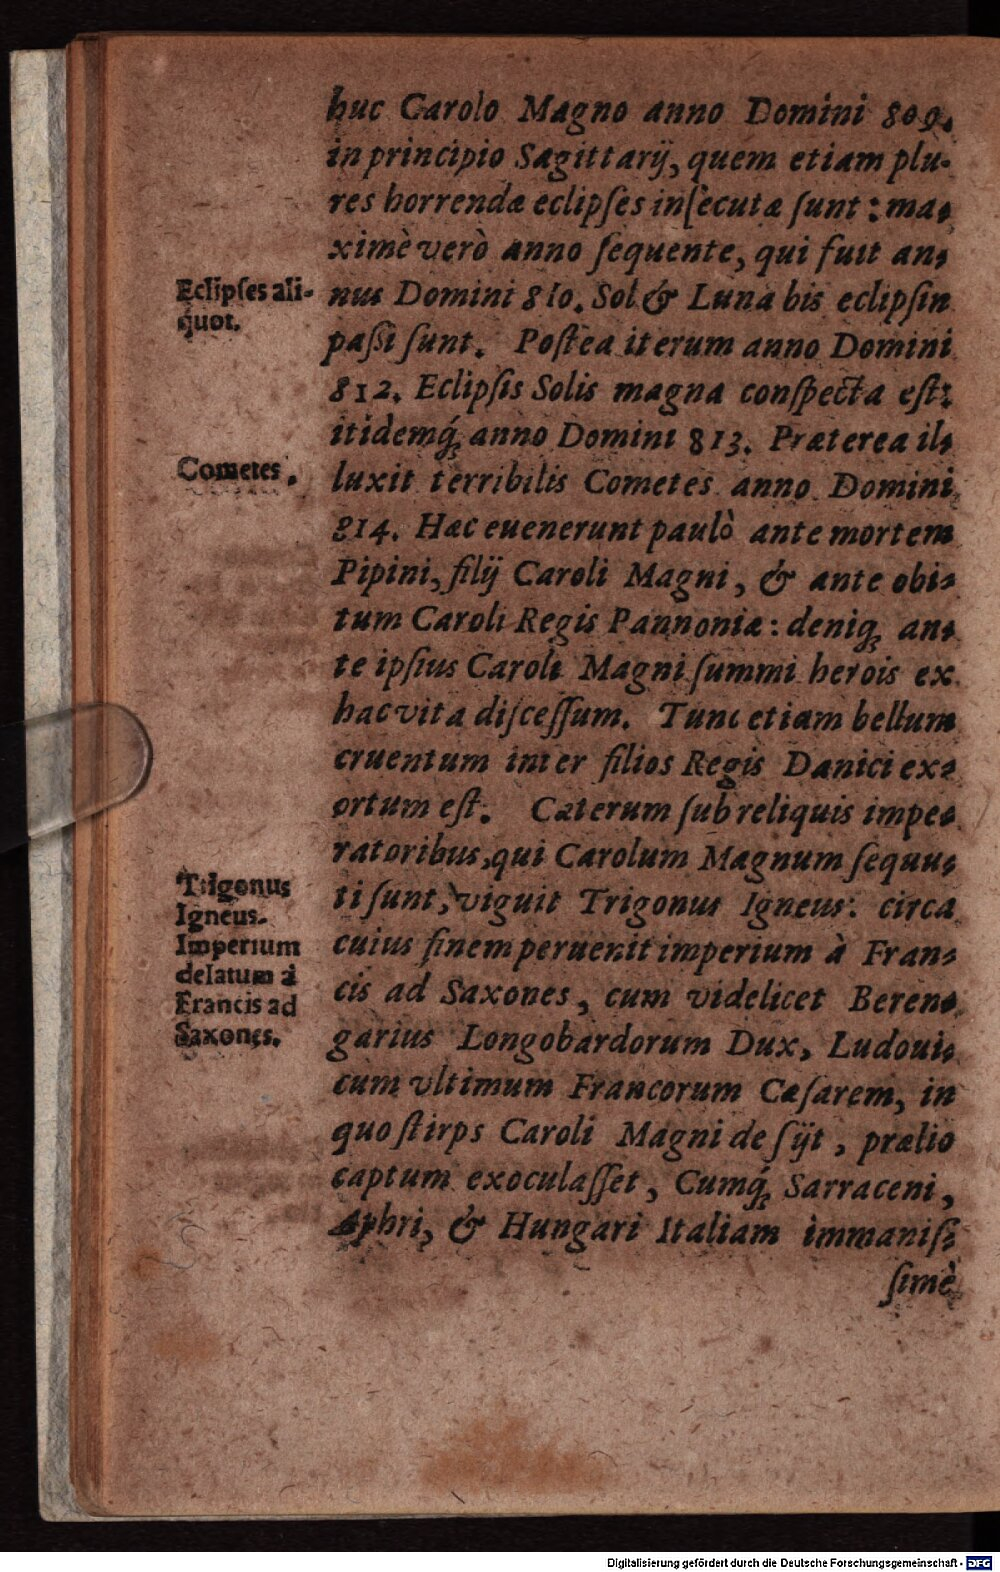 huc Carolo Magno anno Domini 809.
in principio Sagittarij, quem etiam plu-
res horrendæ eclipſes inſecutæ ſunt: ma-
ximè verò anno ſequente, qui fuit an-
Eclipſes ali-
quot.
nus Domini 810. Sol & Luna bis eclipſin
paſſi ſunt. Poſtea iterum anno Domini
812. Eclipſis Solis magna conſpecta eſt:
itidemq́; anno Domini 813. Præterea il-
Cometes.
luxit terribilis Cometes anno Domini
814. Hæc euenerunt paulò ante mortem
Pipini, filij Caroli Magni, & ante obi-
tum Caroli Regis Pannoniæ: deniq; an-
te ipſius Caroli Magni ſummi herois ex
hac vita diſceſſum. Tunc etiam bellum
cruentum inter filios Regis Danici ex-
ortum eſt. Cæterum ſub reliquis impe-
ratoribus, qui Carolum Magnum ſequu-
Trigonus
Igneus.
Imperium
delatum à
Francis ad
Saxones.
ti ſunt, viguit Trigonus Igneus: circa
cuius finem peruenit imperium à Fran-
cis ad Saxones, cum videlicet Beren-
garius Longobardorum Dux, Ludoui-
cum vltimum Francorum Cæſarem, in
quo ſtirps Caroli Magni deſijt, prælio
captum exoculaſſet, Cumq́; Sarraceni,
Aphri, & Hungari Italiam immaniſ-
ſimè
Digitalisierung gefördert durch die Deutsche Forschungsgemeinschaft - DFG